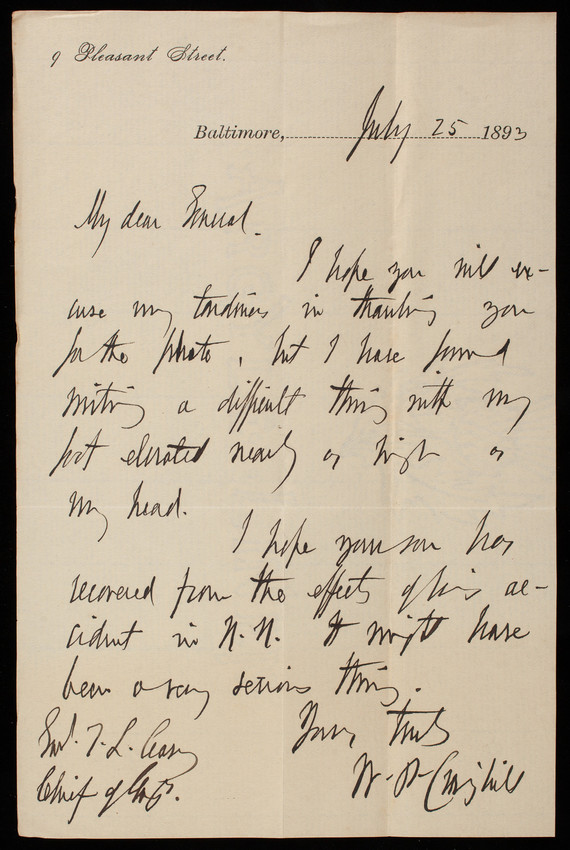 9 Pleasant Street.
Baltimore, July 25 1893
My dear General.
I hope you will ex-
cuse my tardiness in thanking you
for the photo, but I have found
writing a difficult thing with my
foot elevated nearly as high as
my head.
I hope your son has
recovered from the effects of his ac-
cident in N.N. It might have
been a very serious thing.
Yours truly
W. P. Craighill
Genl. T. L. Casey
Chief of Engs.